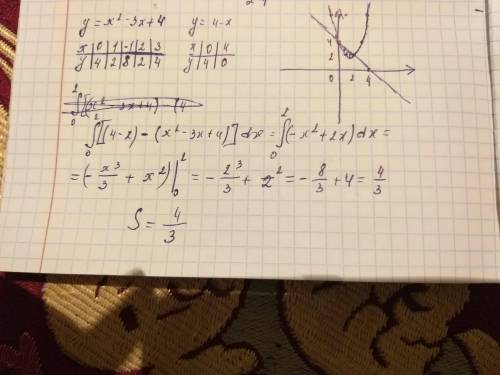 y = x² - 3x + 4   y = 4 - x
x | 0 | 1 | -1 | 2 | 3   x | 0 | 4
y | 4 | 2 | 8 | 2 | 4   y | 4 | 0
4
2
0 2 4
2
∫[(4-2) - (x² - 3x + 4)] dx = ∫₀²(-x² + 2x) dx =
0
= (-x³/3 + x²)|₀² = -2³/3 + 2² = -8/3 + 4 = 4/3
S = 4/3